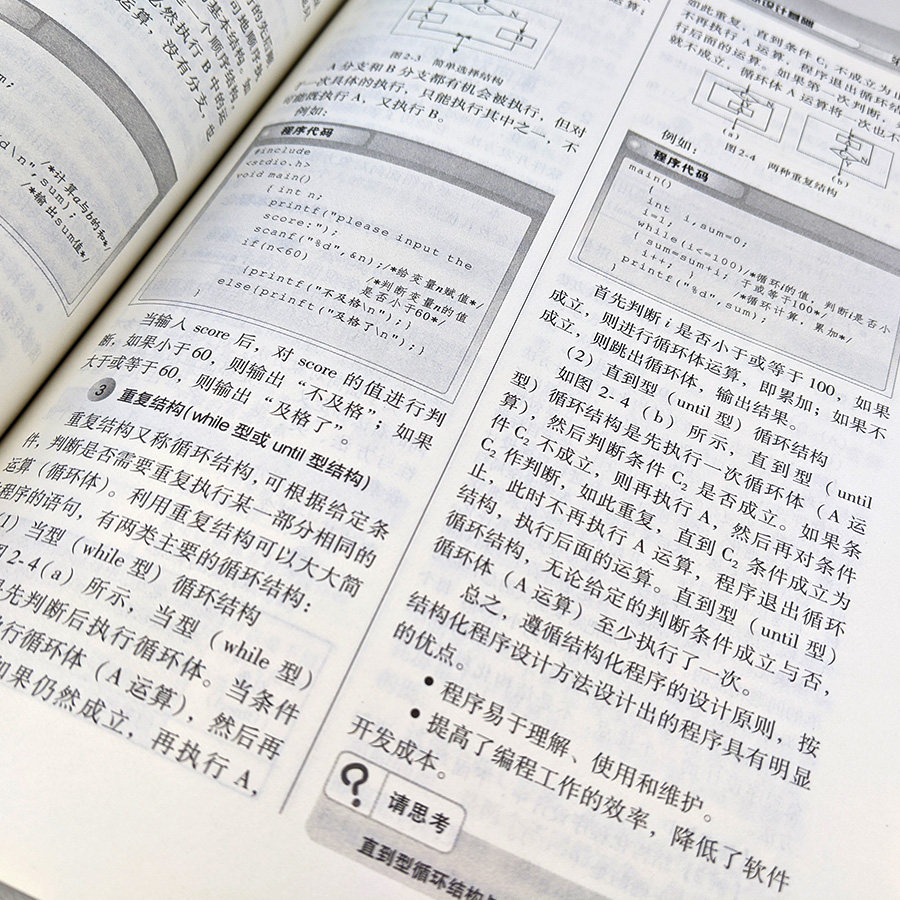 的先后顺
可地顺序执
基本结构。如
一个顺序结构,
必然执行 B 中的运
算,没有分支,也
d\n",/*计算a与b的和*/
sum);/*输出sum值*/
图2-3 简单选择结构
A 分支和 B 分支都有机会被执行,但对
于一次具体的执行,只能执行其中之一,不
可能既执行 A,又执行 B。
例如:
程序代码
#include
<stdio.h>
void main()
{ int n;
printf("please input the
score:");
scanf("%d",&n);/*给变量n赋值*/
if(n<60) /*判断变量n的值
是否小于60*/
{printf("不及格\n");}
else{prinft("及格了\n");}
}
当输入 score 后,对 score 的值进行判
断,如果小于60,则输出“不及格”;如果
大于或等于60,则输出“及格了”。
3 重复结构(while 型或 until 型结构)
重复结构又称循环结构,可根据给定条
件,判断是否需要重复执行某一部分相同的
运算(循环体)。利用重复结构可以大大简
程序的语句,有两类主要的循环结构:
(1)当型(while 型)循环结构
图2-4(a)所示,当型(while 型)
是先判断后执行循环体。当条件
执行循环体(A 运算),然后再
如果仍然成立,再执行 A,
设计基础
如此重复,直到条件 C₁ 不成立为止
不再执行 A 运算,程序退出循环结
行后面的运算。如果第一次判断,
就不成立,循环体 A 运算将一次也不
(a)
(b)
图2-4 两种重复结构
例如:
程序代码
main()
{
int i,sum=0;
i=1;
while(i<=100)/*循环i的值,判断i是否小
于或等于100*/
{ sum=sum+i; /*循环计算,累加*/
i++; }
printf("%d",sum);
}
首先判断 i 是否小于或等于 100,如果
成立,则进行循环体运算,即累加;如果不
成立,则跳出循环体,输出结果。
(2)直到型(until 型)循环结构
如图 2-4(b)所示,直到型(until
型)循环结构是先执行一次循环体(A 运
算),然后判断条件 C₂ 是否成立。如果条
件 C₂ 不成立,则再执行 A,然后再对条件
C₂ 作判断,如此重复,直到 C₂ 条件成立为
止,此时不再执行 A 运算,程序退出循环
结构,执行后面的运算。直到型(until 型)
循环结构,无论给定的判断条件成立与否,
循环体(A 运算)至少执行了一次。
总之,遵循结构化程序的设计原则,按
结构化程序设计方法设计出的程序具有明显
的优点。
• 程序易于理解、使用和维护。
• 提高了编程工作的效率,降低了软件
开发成本。
?
请思考
直到型循环结构与